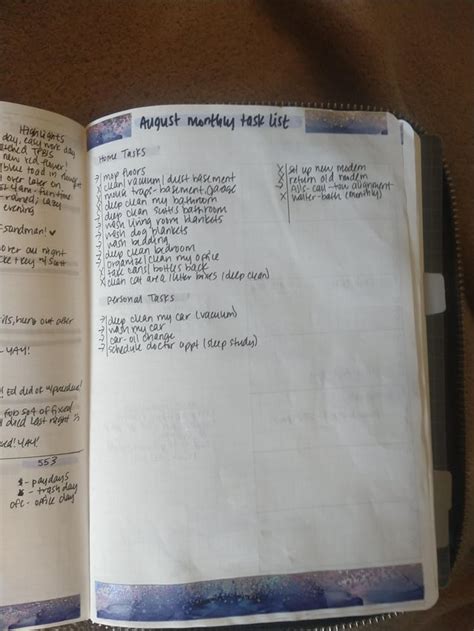 Highlights
day, easy work day
new red flower!
over later on
evening
Sandman!
over au night
- YAY!
died last night
YAY!
553
- paydays
- trash day
ofc - office day
August monthly task list
Home Tasks
mop floors
clean/vacuum/dust basement
mouse traps - basement, garage
deep clean my bathroom
deep clean Scott's bathroom
wash living room blankets
wash dog blankets
wash bedding
deep clean bedroom
organize/clean my office
take cans/bottles back
clean cat area/litter boxes (deep clean)
set up new modem
return old modem
call
water-bath
Personal Tasks
deep clean my car (vacuum)
wash my car
car-oil change
schedule doctor appt (sleep study)